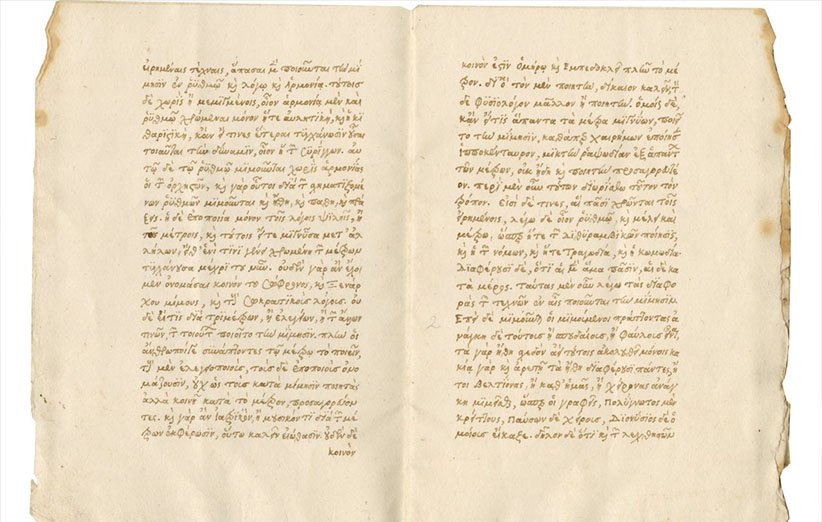 εἰρημέναις τέχναις, ἅπασαι μὲν ποιοῦνται τὴν μί
μησιν ἐν ῥυθμῷ καὶ λόγῳ καὶ ἁρμονίᾳ. τούτοις
δὲ χωρὶς ἢ μεμιγμένοις, οἷον ἁρμονίᾳ μὲν καὶ
ῥυθμῷ χρώμεναι μόνον ἥτε αὐλητικὴ, καὶ ἡ κι
θαριστικὴ, κἂν εἴ τινες ἕτεραι τυγχάνωσιν οὖσαι
τοιαῦται τὴν δύναμιν, οἷον ἡ τῶν συρίγγων. αὐ
τῷ δὲ τῷ ῥυθμῷ μιμοῦνται χωρὶς ἁρμονίας
οἱ τῶν ὀρχηστῶν, καὶ γὰρ οὗτοι διὰ τῶν σχηματιζομέ
νων ῥυθμῶν μιμοῦνται καὶ ἤθη, καὶ πάθη, καὶ πρά
ξεις. ἡ δὲ ἐποποιία μόνον τοῖς λόγοις ψιλοῖς, ἢ
τοῖς μέτροις, καὶ τούτοις εἴτε μιγνῦσα μετ' ἀλ
λήλων, εἴθ' ἑνί τινι γένει χρωμένη τῶν μέτρων
τυγχάνουσα μέχρι τοῦ νῦν. οὐδὲν γὰρ ἂν ἔχοι
μεν ὀνομάσαι κοινὸν τοὺς Σώφρονος, καὶ Ξενάρ
χου μίμους, καὶ τοὺς Σωκρατικοὺς λόγους. οὐ
δὲ εἴ τις διὰ τριμέτρων, ἢ ἐλεγείων, ἢ τῶν ἄλλων
τινῶν τῶν τοιούτων ποιοῖτο τὴν μίμησιν. πλὴν οἱ
ἄνθρωποί γε συνάπτοντες τῷ μέτρῳ τὸ ποιεῖν,
τοὺς μὲν ἐλεγειοποιοὺς, τοὺς δὲ ἐποποιοὺς ὀνο
μάζουσιν, οὐχ ὡς τοὺς κατὰ μίμησιν ποιητὰς
ἀλλὰ κοινῇ κατὰ τὸ μέτρον προσαγορεύον
τες. καὶ γὰρ ἂν ἰατρικὸν, ἢ μουσικόν τι διὰ τῶν μέ
τρων ἐκφέρωσιν, οὕτω καλεῖν εἰώθασιν. οὐδὲν δὲ
κοινὸν
κοινὸν ἐστὶν Ὁμήρῳ καὶ Ἐμπεδοκλεῖ πλὴν τὸ μέ
τρον. διὸ τὸν μὲν ποιητὴν, δίκαιον καλεῖν, τὸν
δὲ φυσιολόγον μᾶλλον ἢ ποιητήν. ὁμοίως δὲ,
κἂν εἴ τις ἅπαντα τὰ μέτρα μιγνύων, ποιοῖ
το τὴν μίμησιν, καθάπερ Χαιρήμων ἐποίησεν
ἱπποκένταυρον, μικτὴν ῥαψωδίαν ἐξ ἁπάντων
τῶν μέτρων, οὐκ ἤδη καὶ ποιητὴν προσαγορευτέ
ον. περὶ μὲν οὖν τούτων διωρίσθω τοῦτον τὸν
τρόπον. εἰσὶ δέ τινες, αἳ πᾶσι χρῶνται τοῖς
εἰρημένοις, λέγω δὲ οἷον ῥυθμῷ, καὶ μέλει καὶ
μέτρῳ, ὥσπερ ἥτε τῶν διθυραμβικῶν ποίησις,
καὶ ἡ τῶν νόμων, καὶ ἥτε τραγῳδία, καὶ ἡ κωμῳδία
διαφέρουσι δὲ, ὅτι αἱ μὲν ἅμα πᾶσιν, αἱ δὲ κα
τὰ μέρος. ταύτας μὲν οὖν λέγω τὰς διαφο
ρὰς τῶν τεχνῶν ἐν αἷς ποιοῦνται τὴν μίμησιν.
Ἐπεὶ δὲ μιμοῦνται οἱ μιμούμενοι πράττοντας ἀ
νάγκη δὲ τούτους ἢ σπουδαίους, ἢ φαύλους εἶναι,
τὰ γὰρ ἤθη σχεδὸν ἀεὶ τούτοις ἀκολουθεῖ μόνοις κα
κίᾳ γὰρ καὶ ἀρετῇ τὰ ἤθη διαφέρουσι πάντες, ἤ
τοι βελτίονας, ἢ καθ' ἡμᾶς, ἢ χείρονας ἀνάγ
κη μιμεῖσθαι, ὥσπερ οἱ γραφεῖς, Πολύγνωτος μὲν
κρείττους, Παύσων δὲ χείρους, Διονύσιος δὲ ὁ
μοίους εἴκαζε. δῆλον δὲ ὅτι καὶ τῶν λεχθεισῶν
2